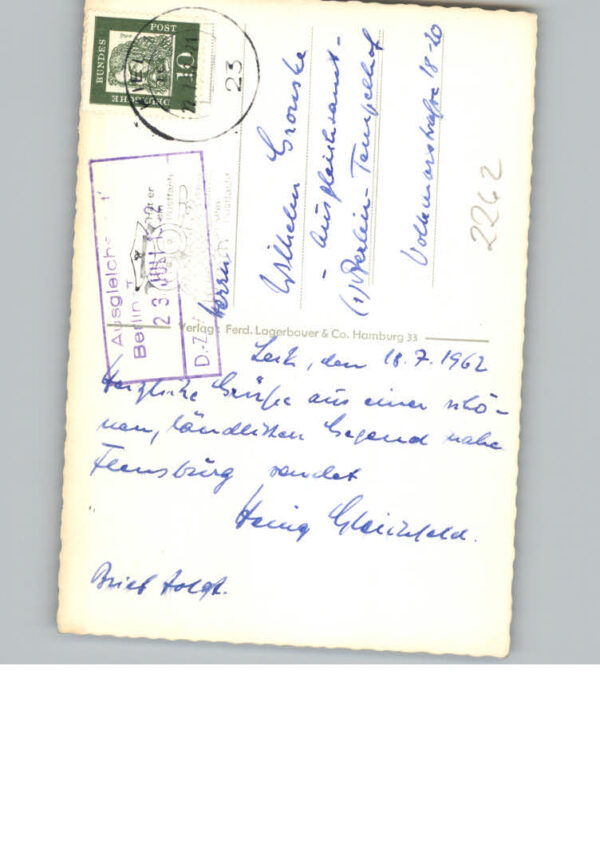 DEUTSCHE
BUNDES
POST
10
23
Ausgleichs
Berlin
23. JULI 1962
D.-Z.
Herrn
Wilhelm
- Ausgleichsamt -
(1) Berlin-Tempelhof
Volkmarstraße 18-20
2262
Verlag: Ferd. Lagerbauer & Co. Hamburg 33
Leck, den 18.7.1962
Herzliche Grüße aus einer schö-
nen, ländlichen Gegend nahe
Flensburg sendet
Brief folgt.